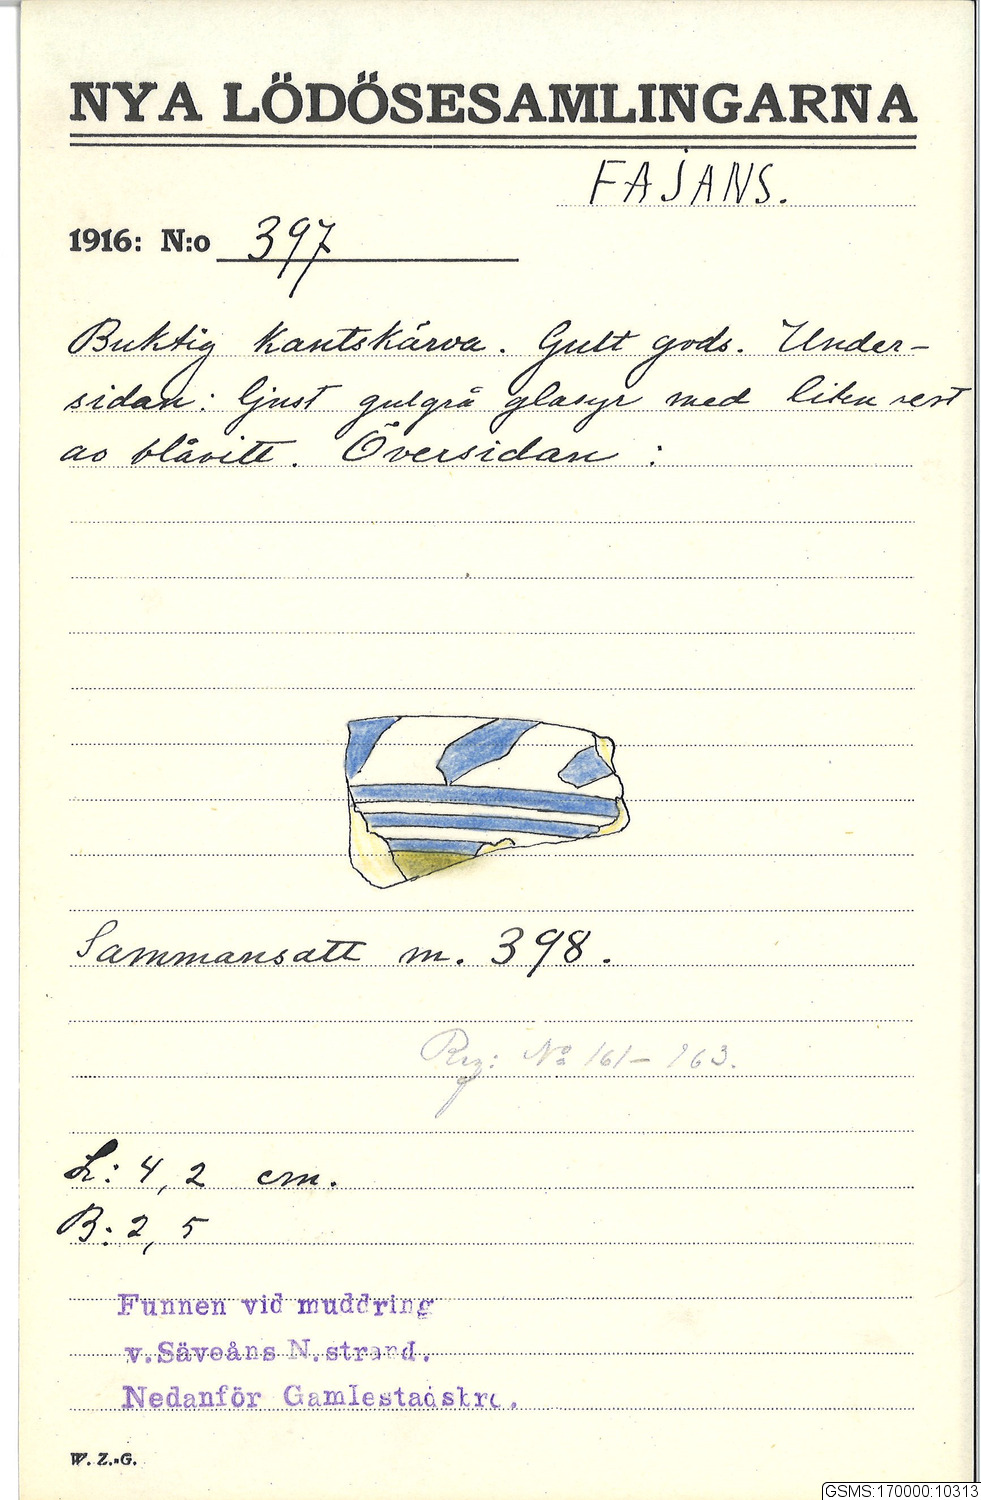 NYA LÖDÖSESAMLINGARNA
FAJANS.
1916: N:o 397
Buktig kantskärva. Gult gods. Under-
sidan: ljust gulgrå glasyr med liten rest
av blåvitt. Översidan :
Sammansatt m. 398.
Reg: No 161–163.
L: 4,2 cm.
B: 2,5
Funnen vid muddring
v.Säveåns N.strand.
Nedanför Gamlestadsbro.
W. Z.-G.
GSMS:170000:10313